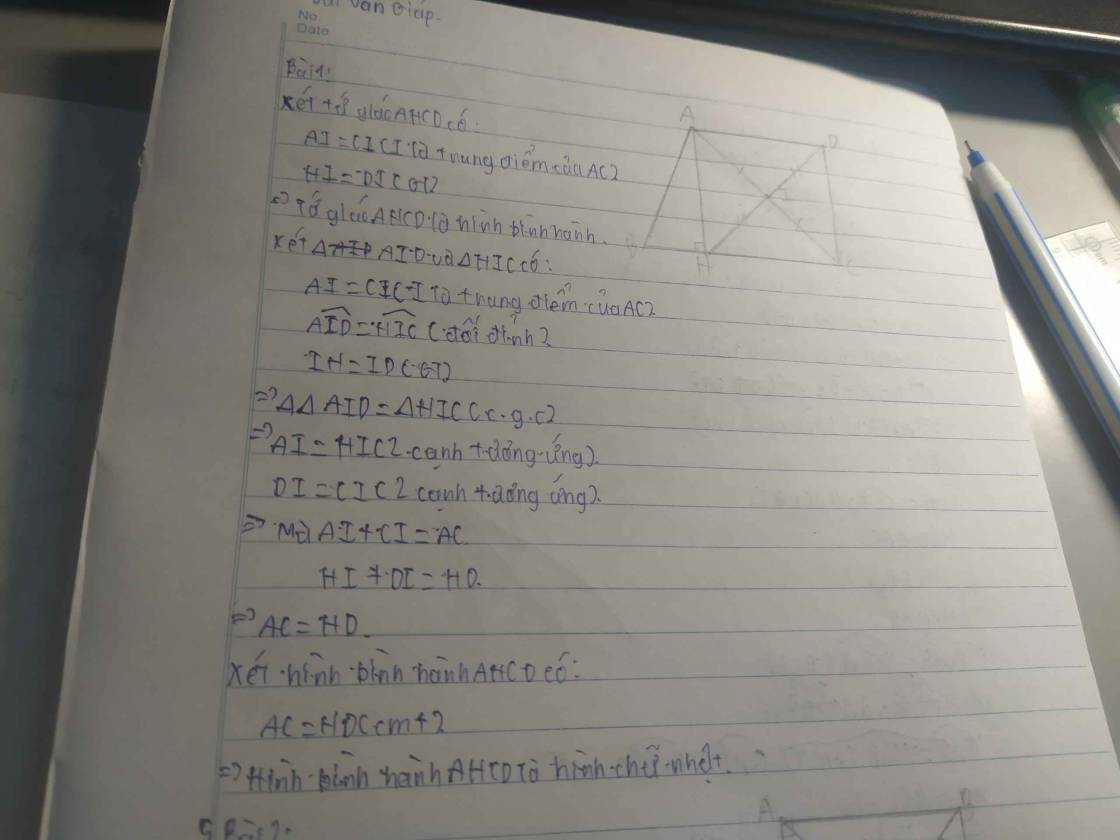 Văn Giáp.
No.
Date
Bài 1:
Xét tứ giác AHCD có:
AI = CI (I là trung điểm của AC)
HI = DI (GT)
=> Tứ giác AHCD là hình bình hành.
Xét Δ AID và ΔHIC có:
AI = CI (I là trung điểm của AC)
AID = HIC (đối đỉnh)
IH = ID (GT)
=> ΔΔ AID = ΔHIC (c.g.c)
=> AI = HI (2 cạnh tương ứng).
DI = CI (2 cạnh tương ứng).
=> Mà AI + CI = AC
HI + DI = HD.
=> AC = HD.
Xét hình bình hành AHCD có:
AC = HD (cmt)
=> Hình bình hành AHCD là hình chữ nhật.
Bài 2:
A
D
B
H
C
A
B